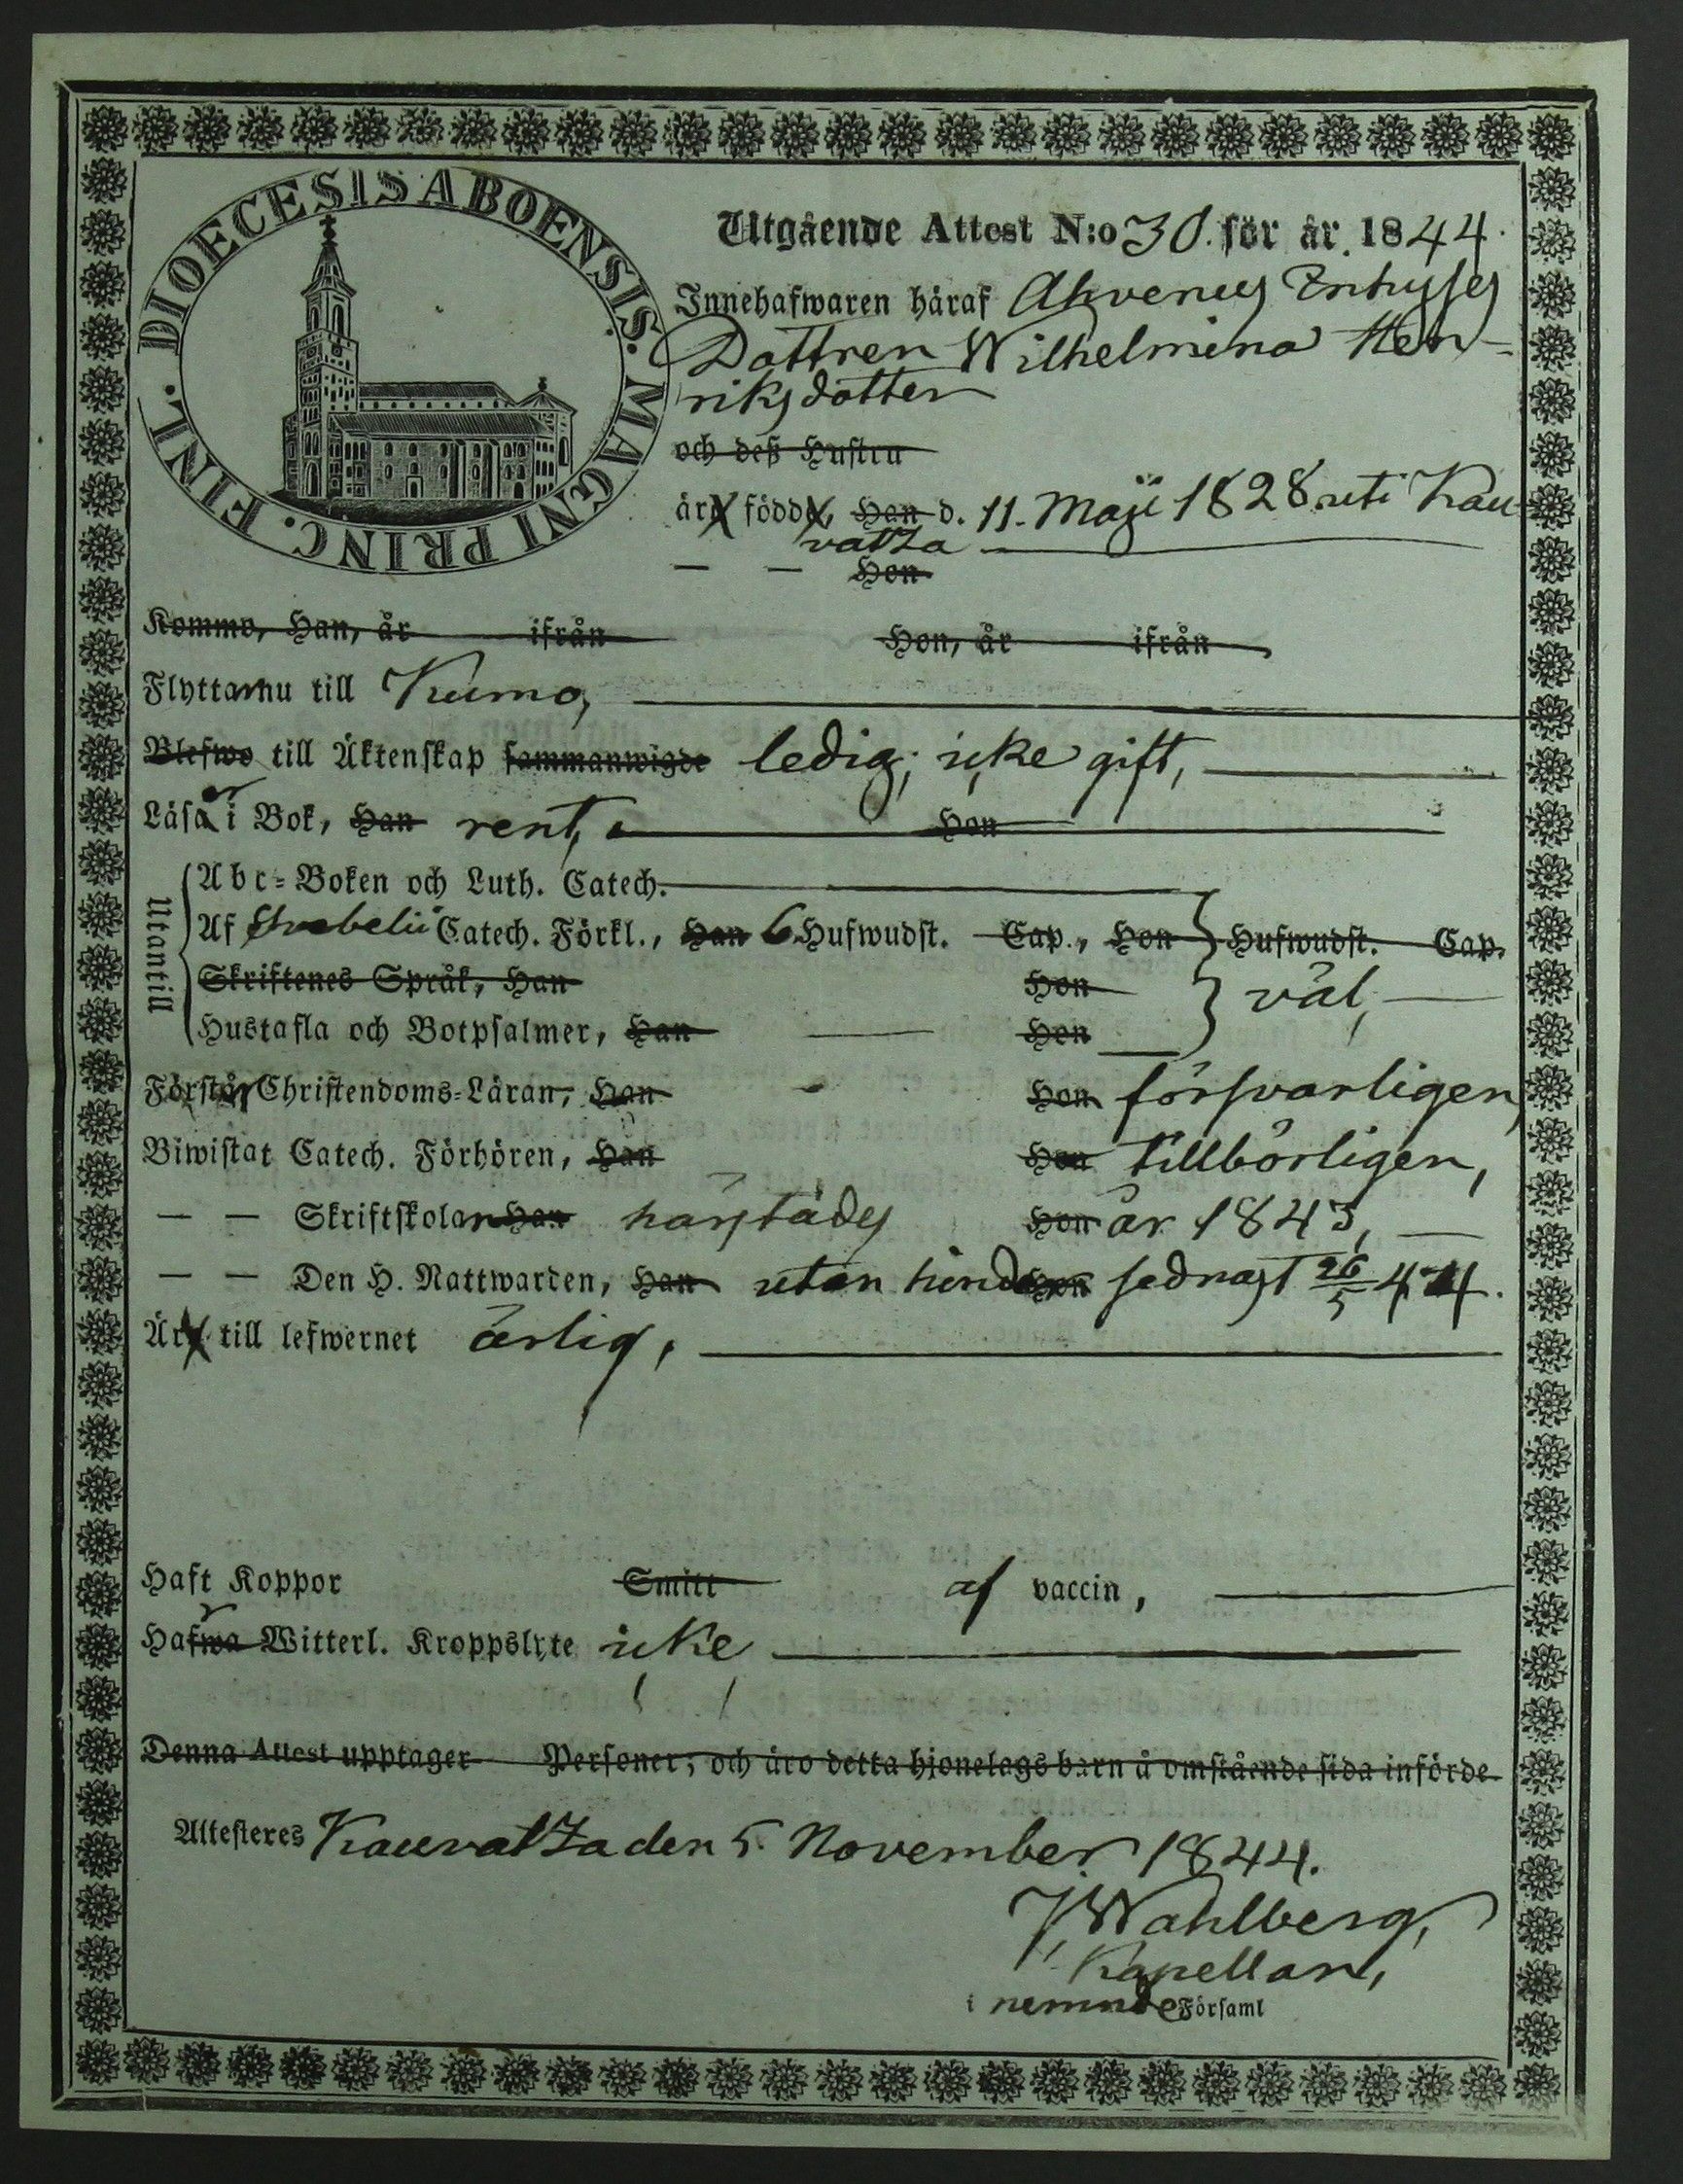 DIOECESIS ABOENSIS. MAGNI PRINC. FINL.
Utgående Attest N:o 30. för år 1844.
Innehafwaren häraf Ahvenus
Dottren Wilhelmina Hen-
riksdotter
och deß Hustru
äro födde, Han d. 11. Maji 1828 uti Kau-
vatza
— — Hon
Kommo, Han, år ifrån Hon, år ifrån
Flytta nu till Kumo,
Blefwo till Äktenskap sammanwigde ledig; icke gift,
Läsa i Bok, Han rent, Hon
Utantill
Abc-Boken och Luth. Catech.
Af Svebelii Catech. Förkl., Han 6 Hufwudst. Cap., Hon Hufwudst. Cap.
Skriftenes Språk, Han Hon väl,
Hustafla och Botpsalmer, Han Hon
Förstår Christendoms-Läran, Han Hon försvarligen,
Biwistat Catech. Förhören, Han Hon tillbörligen,
— — Skriftskolan Han härstädes Hon år 1843,
— — Den H. Nattwarden, Han utan hinder Hon sednast 26/5 44.
Äro till lefwernet ärlig,
Haft Koppor Smitt af vaccin,
Hafwa Witterl. Kroppslyte icke
Denna Attest upptager Personer; och äro detta hjonelags barn å omstående sida införde.
Attesteres Kauvatza den 5. November 1844.
J. Wahlberg,
Kapellan,
i nemnde Församl